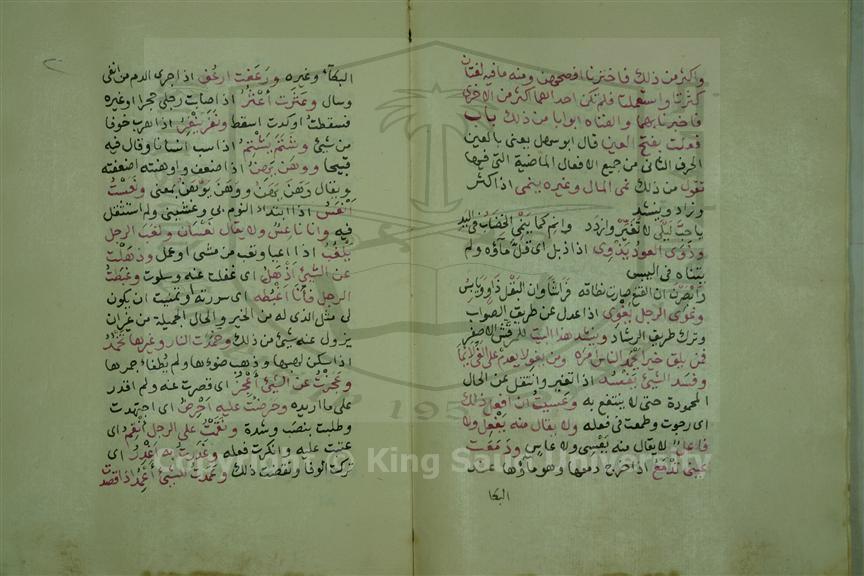 واكثر من ذلك فاخترنا افصحهن ومنه ما فيه لغتان
كثرتا واستعملتا فلم تكن احداهما اكثر من الاخرى
فاخبرنا بهما والفناه ابوابا من ذلك باب
فعلت بفتح العين قال ابو سهل يعنى بالعين
الحرف الثانى من جميع الافعال الماضية التى فيها
تقول من ذلك نمى المال وغيره ينمى اذا كثر
وزاد وينشد
يا حب ليلى لا تغير وازدد وانم كما ينمى الخضاب فى اليد
وذوى العود يذوى اذا ذبل اى قل ماؤه ولم
يتناه فى اليبس
رايت ان الفتى صارت نطافه فراشا وان البقل ذاو ويابس
وغوى الرجل يغوى اذا عدل عن طريق الصواب
وترك طريق الرشاد وينشد هذا البيت للمرقش الاصغر
فمن يلق خيرا يحمد الناس امره ومن يغو لا يعدم على الغى لائما
وفسد الشيئ يفسد اذا تغير وانتقل عن الحال
المحمودة حتى لا ينتفع به وعسيت ان افعل ذلك
اى رجوت وطمعت فى فعله ولا يقال منه يفعل ولا
فاعل لا يقال منه يعسى ولا عاس ودمعت
عينى تدمع اذا خرج دمعها وهو ماؤها عند
البكا
البكآء وغيره ورعفت ارعف اذا جرى الدم من انفى
وسال وعثرت اعثر اذا اصابت رجلى حجرا او غيره
فسقطت او كدت اسقط ونفر ينفر اذا هرب خوفا
من شيئ وشتم يشتم اذا سب انسانا وقال فيه
قبيحا ووهن يهن اذا ضعف واوهنته اضعفته
ويقال وهن يهن ووهن يوهن بمعنى ونعست
انعس اذا ابتداء النوم بى وغشينى ولم استثقل
فيه وانا ناعس ولا يقال نعسان ولغب الرجل
يلغب اذا اعيا وتعب من مشى او عمل وذهلت
عن الشيئ اذهل اى غفلت عنه وسلوت وغبطت
الرجل فانا اغبطه اى سررته وتمنيت ان يكون
لى مثل الذى له من الخير والحال الجميلة من غير ان
يزول عنه شيئ من ذلك وخمدت النار وغيرها تخمد
اذا سكن لهبها وذهب ضوءها ولم يطفا جمرها
وعجزت عن الشيئ اعجز اى قصرت عنه ولم اقدر
على ما اريده وحرصت عليه احرص اى اجتهدت
وطلبت بنصب وشدة ونقمت على الرجل انقم اى
عتبت عليه وانكرت فعله وغدرت به اغدر اى
تركت الوفا ونقضت ذلك وعمدت للشيئ اعمد اذا قصدت
Copyright © King Saud University
1957